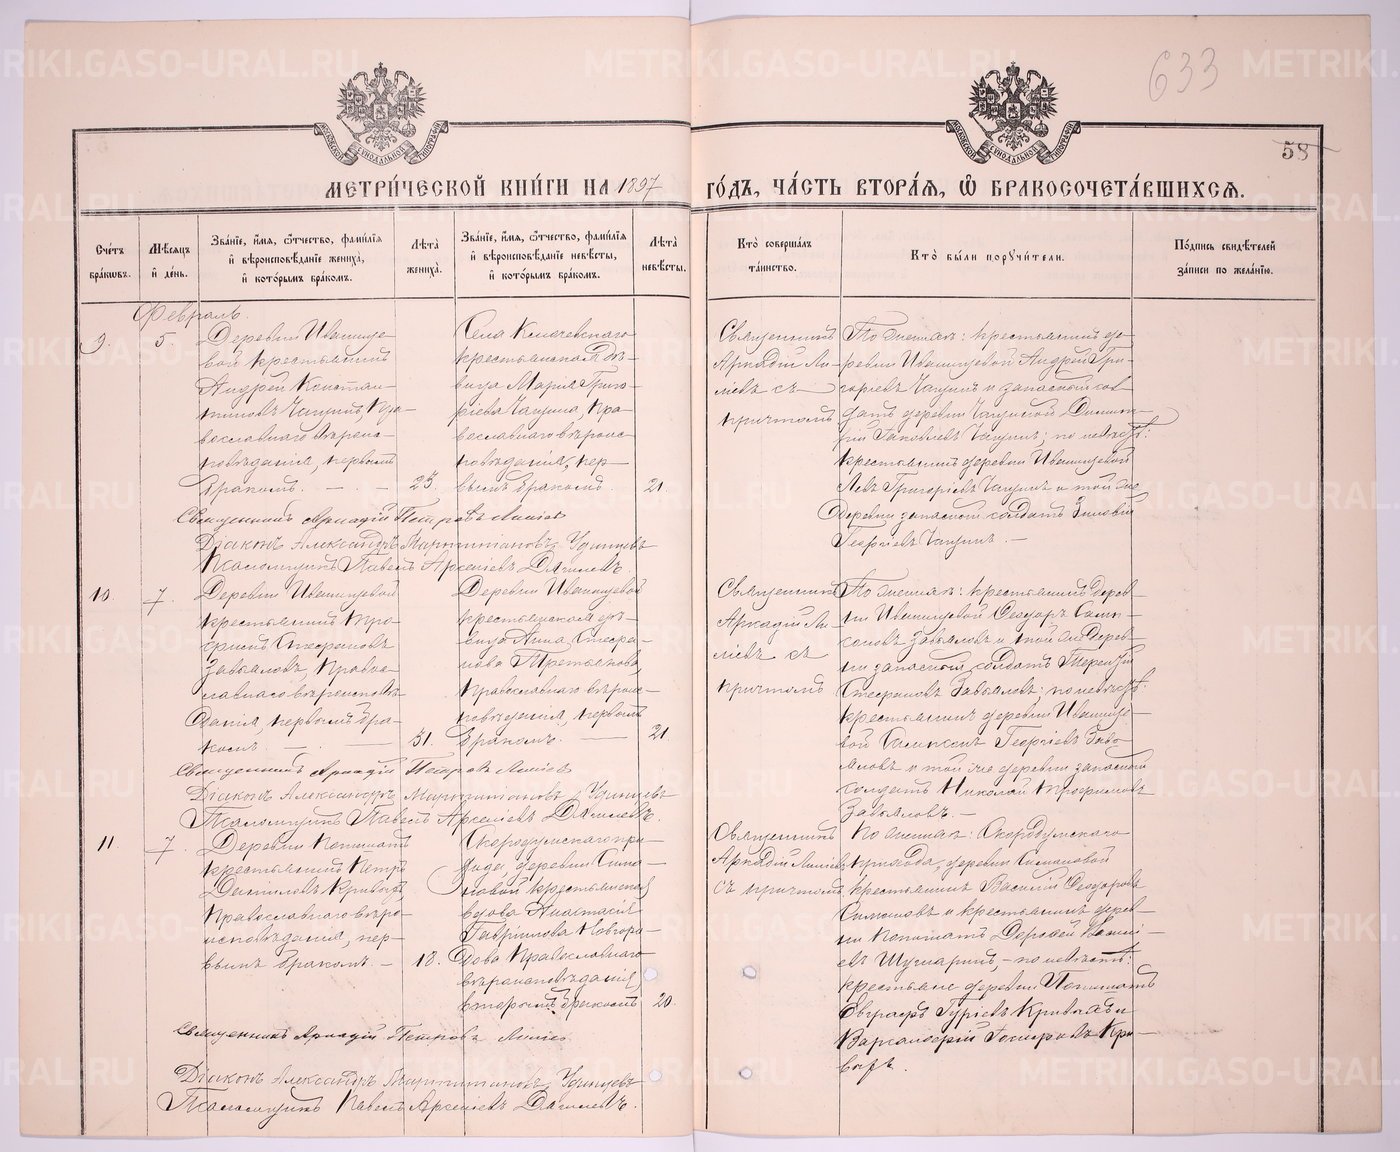 633
58
МЕТРИ́ЧЕСКОЙ КНИ́ГИ НА 1897 ГО́ДЪ, ЧА́СТЬ ВТОРА́Я, Ѡ҆ БРАКОСОЧЕТА́ВШИХСЯ.
Сче́тъ бра́кѡвъ.
Мѣ́сяцъ и҆ де́нь.
Зва́нїе, и҆́мя, ѻ҆́тчество, фами́лїя и҆ вѣроисповѣ́данїе жениха̀, и҆ кото́рымъ бра́комъ.
Лѣ́та жениха̀.
Зва́нїе, и҆́мя, ѻ҆́тчество, фами́лїя и҆ вѣроисповѣ́данїе невѣ́сты, и҆ кото́рымъ бра́комъ.
Лѣ́та невѣ́сты.
Кто̀ соверша́лъ та́инство.
Кто̀ бы́ли порꙋчи́тели.
По́дпись свидѣ́телей за́писи по жела́нїю.
Февраль.
9.
5.
Деревни Иванище-
вой крестьянинъ
Андрей Констан-
тиновъ Чащинъ, Пра-
вославнаго вѣроис-
повѣданія, первымъ
бракомъ. — . —
25.
Села Ключевскаго
крестьянская дѣ-
вица Марія Григо-
ріева Чащина, Пра-
вославнаго вѣроис-
повѣданія, пер-
вымъ бракомъ.
21.
Священникъ
Аркадій Ли-
піевъ съ
причтомъ
По женихѣ: крестьянинъ де-
ревни Иванищевой Андрей Гри-
горіевъ Чащинъ и запасной сол-
датъ деревни Чащиной Димит-
рій Іаковлевъ Чащинъ; по невѣстѣ:
крестьянинъ деревни Иванищевой
Левъ Григоріевъ Чащинъ и той же
деревни запасной солдатъ Зиновій
Георгіевъ Чащинъ. —
Священникъ Аркадій Петровъ Липіевъ
Діаконъ Александръ Удинцевъ
Псаломщикъ Павелъ Арсеніевъ Дягилевъ.
10.
7.
Деревни Иванищевой
крестьянинъ Про-
Стефановъ
Завьяловъ, Правос-
лавнаго вѣроисповѣ-
данія, первымъ бра-
комъ. — . —
31.
Деревни Иванищевой
крестьянская дѣ-
вица Анна Стефа-
нова Третьякова,
Православнаго вѣроис-
повѣданія, первымъ
бракомъ. —
21
Священникъ
Аркадій Ли-
піевъ съ
причтомъ
По женихѣ: крестьянинъ дерев-
ни Иванищевой Ѳеодоръ
Завьяловъ и той же дерев-
ни запасной солдатъ Терентій
Стефановъ Завьяловъ; по невѣстѣ:
крестьянинъ деревни Иванище-
вой Георгіевъ Завья-
ловъ и той же деревни запасной
солдатъ Николай Трофимовъ
Завьяловъ. —
Священникъ Аркадій Петровъ Липіевъ
Діаконъ Александръ Удинцевъ
Псаломщикъ Павелъ Арсеніевъ Дягилевъ.
11
7.
Деревни
крестьянинъ Петръ
Даниловъ Кривыхъ,
Православнаго вѣро-
исповѣданія, пер-
вымъ бракомъ —
18.
Скородумскаго при-
хода, деревни Симо-
новой крестьянская
вдова Анастасія
Гавріилова Новгоро-
дова Православнаго
вѣроисповѣданія,
вторымъ бракомъ
20.
Священникъ
Аркадій Липіевъ
съ причтомъ
По женихѣ: Скородумскаго
прихода, деревни Симоновой
крестьянинъ Василій Ѳеодоровъ
Симоновъ и крестьянинъ дерев-
ни Дороѳей
; по невѣстѣ:
крестьяне деревни
Евграфъ Гуріевъ Кривыхъ и
Кри-
выхъ.
Священникъ Аркадій Петровъ Липіевъ
Діаконъ Александръ Удинцевъ
Псаломщикъ Павелъ Арсеніевъ Дягилевъ.
METRIKI.GASO-URAL.RU